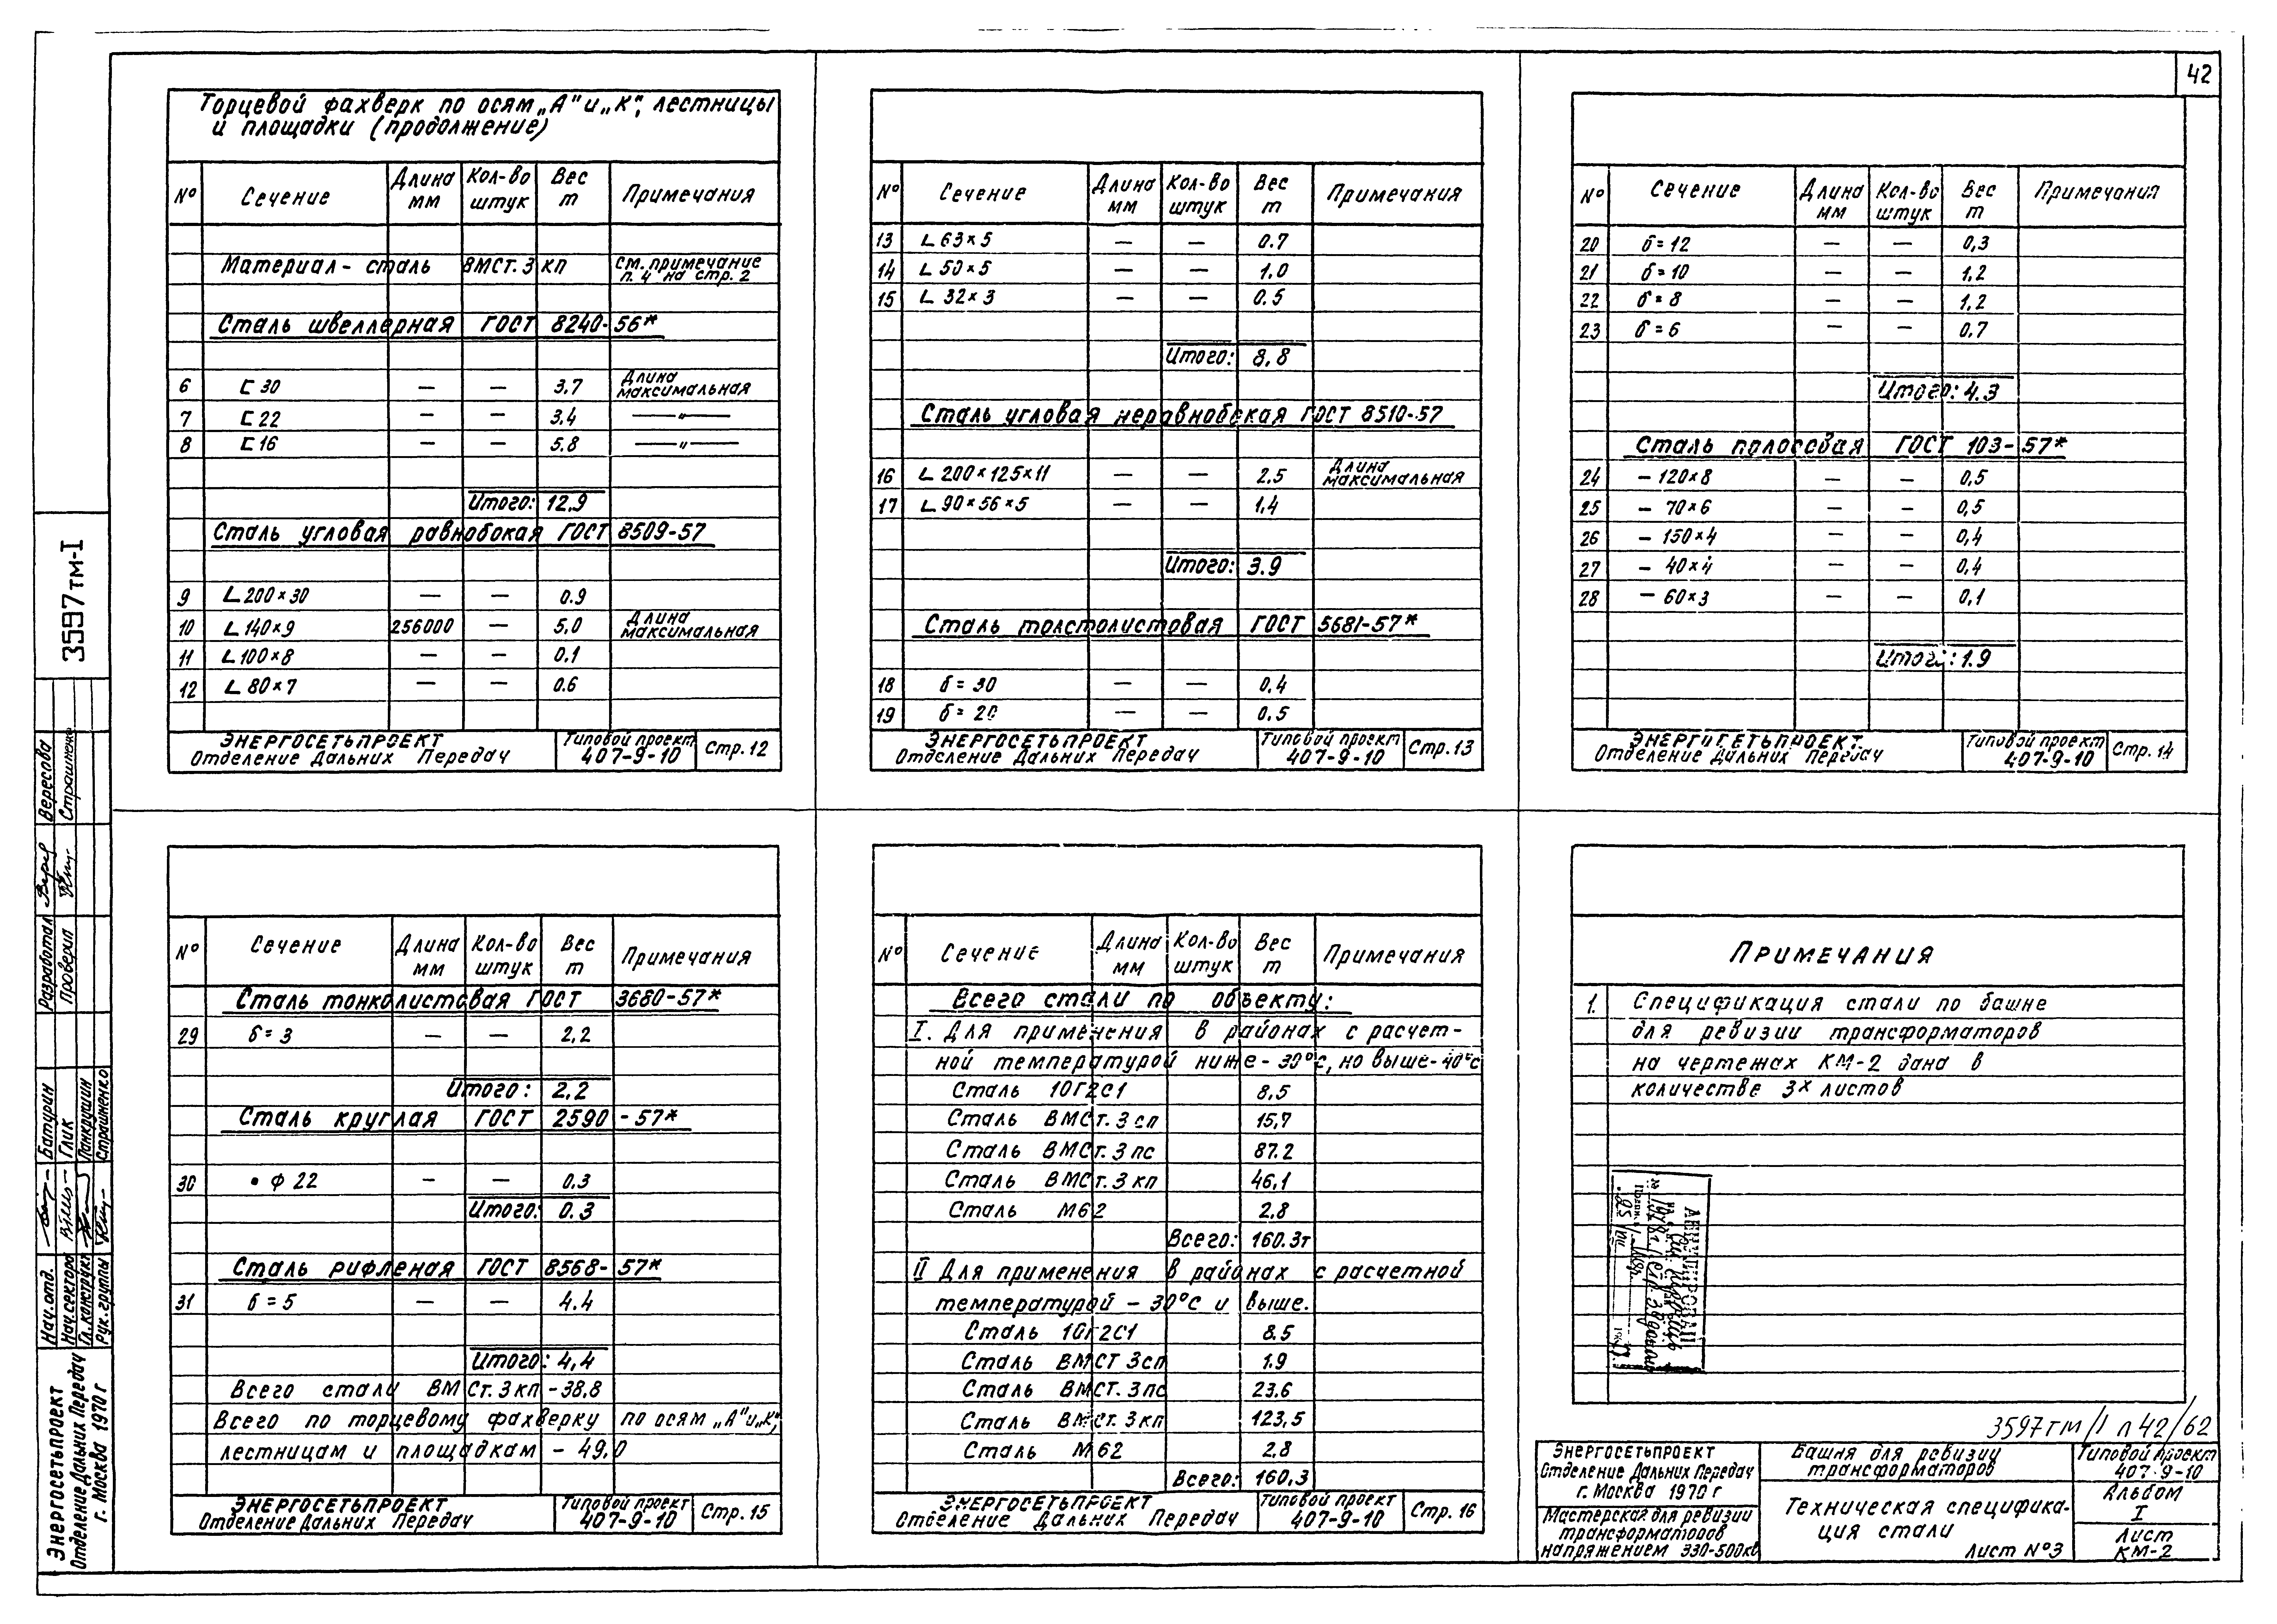 42
Торцевой фахверк по осям „А" и „К", лестницы
и площадки (продолжение)
№ Сечение Длина мм Кол-во штук Вес т Примечания
Материал - сталь ВМСт.3 кп См. примечание п. 4 на стр. 2
Сталь швеллерная ГОСТ 8240-56*
6 [ 30 — — 3.7 Длина максимальная
7 [ 22 — — 3.4 —"—
8 [ 16 — — 5.8 —"—
Итого: 12.9
Сталь угловая равнобокая ГОСТ 8509-57
9 L 200×30 — — 0.9
10 L 140×9 256000 — 5,0 Длина максимальная
11 L 100×8 — — 0.1
12 L 80×7 — — 0.6
ЭНЕРГОСЕТЬПРОЕКТ
Отделение Дальних Передач
Типовой проект
407-9-10
Стр. 12
№ Сечение Длина мм Кол-во штук Вес т Примечания
13 L 63×5 — — 0.7
14 L 50×5 — — 1.0
15 L 32×3 — — 0.5
Итого: 8,8
Сталь угловая неравнобокая ГОСТ 8510-57
16 L 200×125×11 — — 2.5 Длина максимальная
17 L 90×56×5 — — 1,4
Итого: 3.9
Сталь толстолистовая ГОСТ 5681-57*
18 б = 30 — — 0.4
19 б = 20 — — 0.5
ЭНЕРГОСЕТЬПРОЕКТ
Отделение Дальних Передач
Типовой проект
407-9-10
Стр. 13
№ Сечение Длина мм Кол-во штук Вес т Примечания
20 б = 12 — — 0,3
21 б = 10 — — 1,2
22 б = 8 — — 1,2
23 б = 6 — — 0,7
Итого: 4.3
Сталь полосовая ГОСТ 103-57*
24 - 120×8 — — 0,5
25 - 70×6 — — 0,5
26 - 150×4 — — 0,4
27 - 40×4 — — 0,4
28 - 60×3 — — 0,1
Итого: 1.9
ЭНЕРГОСЕТЬПРОЕКТ
Отделение Дальних Передач
Типовой проект
407-9-10
Стр. 14
№ Сечение Длина мм Кол-во штук Вес т Примечания
Сталь тонколистовая ГОСТ 3680-57*
29 б = 3 — — 2,2
Итого: 2,2
Сталь круглая ГОСТ 2590-57*
30 • ф 22 — — 0.3
Итого: 0.3
Сталь рифленая ГОСТ 8568-57*
31 б = 5 — — 4.4
Итого: 4,4
Всего стали ВМСт.3 кп - 38,8
Всего по торцевому фахверку по осям „А" и „К",
лестницам и площадкам - 49,0
ЭНЕРГОСЕТЬПРОЕКТ
Отделение Дальних Передач
Типовой проект
407-9-10
Стр. 15
№ Сечение Длина мм Кол-во штук Вес т Примечания
Всего стали по объекту:
I. Для применения в районах с расчет-
ной температурой ниже - 30°с, но выше - 40°с
Сталь 10Г2С1 8,5
Сталь ВМСт.3 сп 15,7
Сталь ВМСт.3 пс 87.2
Сталь ВМСт.3 кп 46,1
Сталь М62 2.8
Всего: 160.3т
II Для применения в районах с расчетной
температурой - 30°с и выше.
Сталь 10г2с1 8.5
Сталь ВМСТ 3сп 1.9
Сталь ВМСТ. 3пс 23.6
Сталь ВМСт. 3кп 123,5
Сталь М62 2.8
Всего: 160,3
ЭНЕРГОСЕТЬПРОЕКТ
Отделение Дальних Передач
Типовой проект
407-9-10
Стр. 16
ПРИМЕЧАНИЯ
1. Спецификация стали по башне
для ревизии трансформаторов
на чертежах КМ-2 дана в
количестве 3х листов
3597тм/1 л 42/62
ЭНЕРГОСЕТЬПРОЕКТ
Отделение Дальних Передач
г. Москва 1970 г
Мастерская для ревизии
трансформаторов
напряжением 330-500кв
Башня для ревизии
трансформаторов
Техническая специфика-
ция стали
Лист №3
Типовой проект
407-9-10
Альбом
I
Лист
КМ-2
3597тм-I
Разработал Вересова
Проверил Страшненко
Нач. отд. Батурин
Нач. сектора Глик
Гл. конструкт Панкрушин
Рук. группы Страшненко
Энергосетьпроект
Отделение Дальних Передач
г. Москва 1970 г